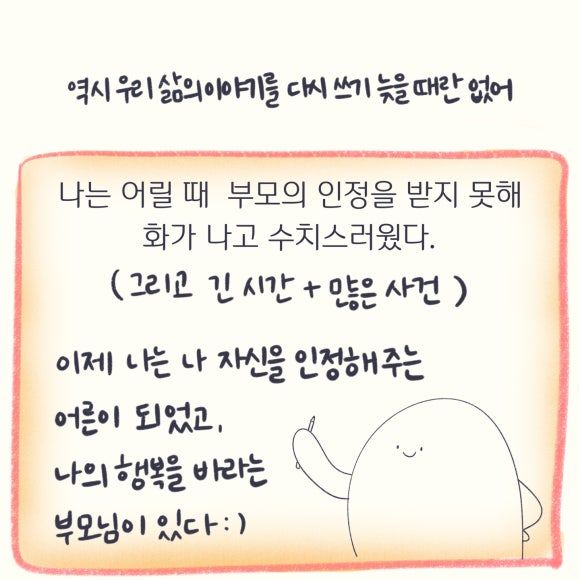 역시 우리 삶의 이야기를 다시 쓰기 늦을 때란 없어
나는 어릴 때 부모의 인정을 받지 못해
화가 나고 수치스러웠다.
( 그리고 긴 시간 + 많은 사건 )
이제 나는 나 자신을 인정해 주는
어른이 되었고,
나의 행복을 바라는
부모님이 있다 : )